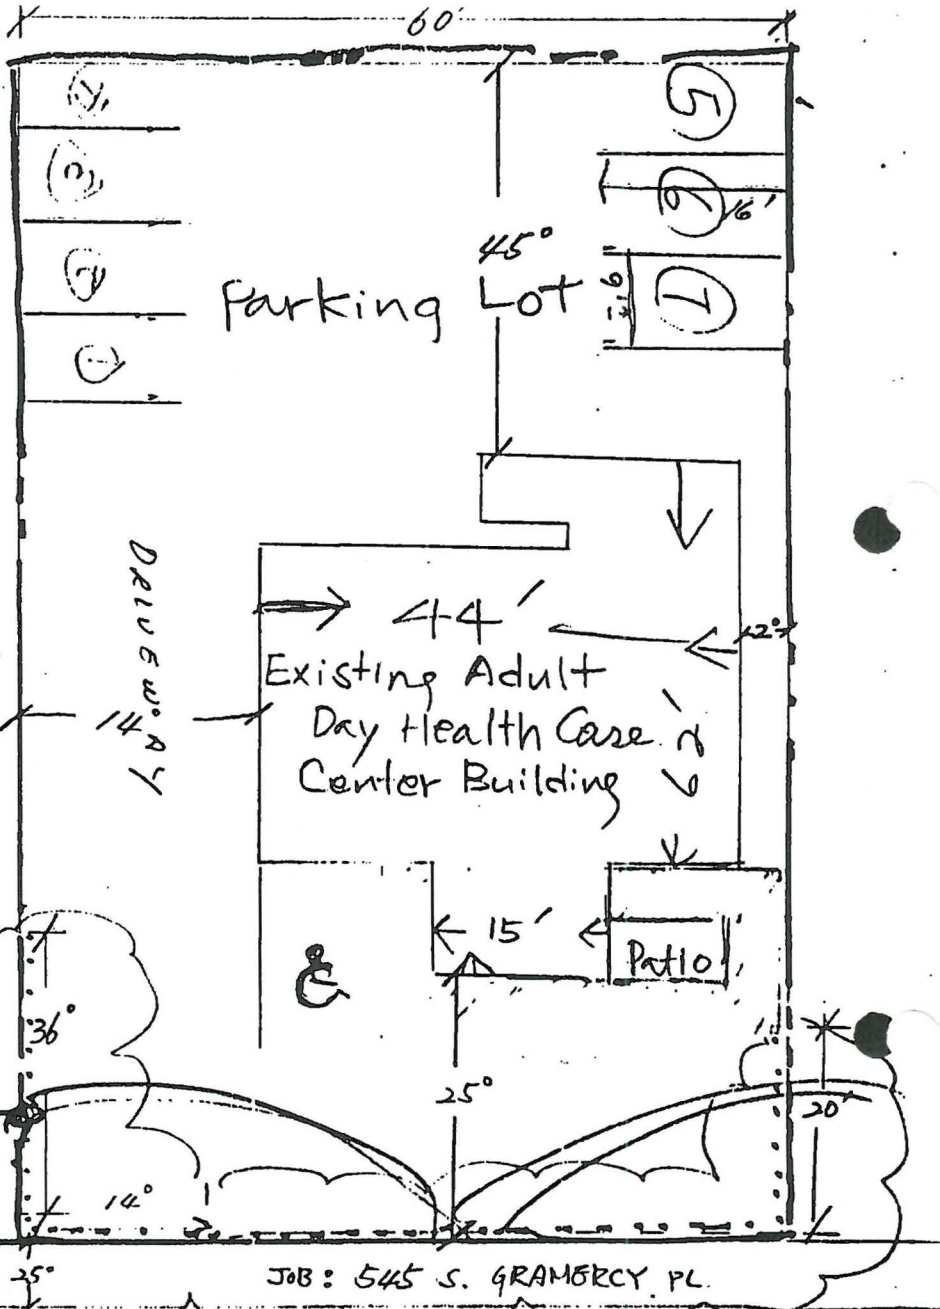 60'
5
6
16'
45°
Parking Lot
7
DRIVEWAY
44'
2°
Existing Adult
Day Health Case
Center Building
14'
62'
15'
Patio
36°
25°
20'
14°
25°
JOB: 545 S. GRAMERCY PL.